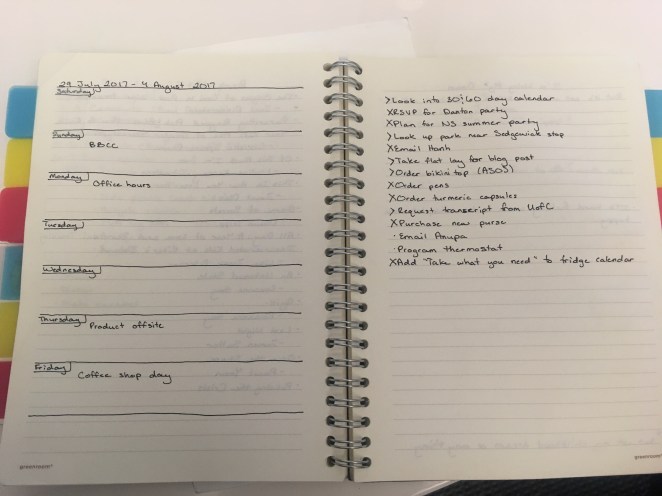 29 July 2017 - 4 August 2017
Saturday
Sunday
BBCC
Monday
Office hours
Tuesday
Wednesday
Thursday
Product offsite
Friday
Coffee shop day
greenroom
>Look into 30/60 day calendar
XRSVP for Danton party
XPlan for NS summer party
>Look up park near Sedgewick stop
XEmail Hanh
>Take flat lay for blog post
>Order bikini top (ASOS)
XOrder pens
XOrder turmeric capsules
>Request transcript from UofC
XPurchase new purse
· Email Anupa
· Program thermostat
XAdd "Take what you need" to fridge calendar
greenroom